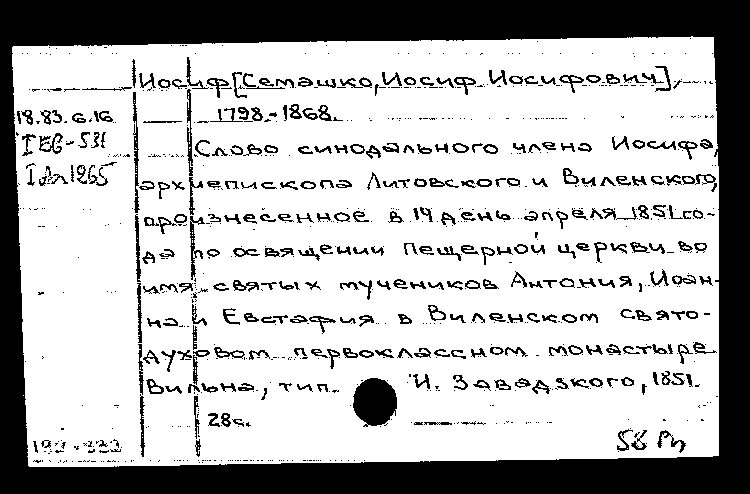 Иосиф [Семашко, Иосиф Иосифович],
18.83.6.16 1798-1868.
IEG-531
Слово синодального члена Иосифа,
архиепископа Литовского и Виленского,
произнесенное в 14 день апреля 1851 го-
да по освящении пещерной церкви во
имя святых мучеников Антония, Иоан-
на и Евстафия в Виленском свято-
духовом первоклассном монастыре
Вильна, тип. И. Завадзкого, 1851.
28с.